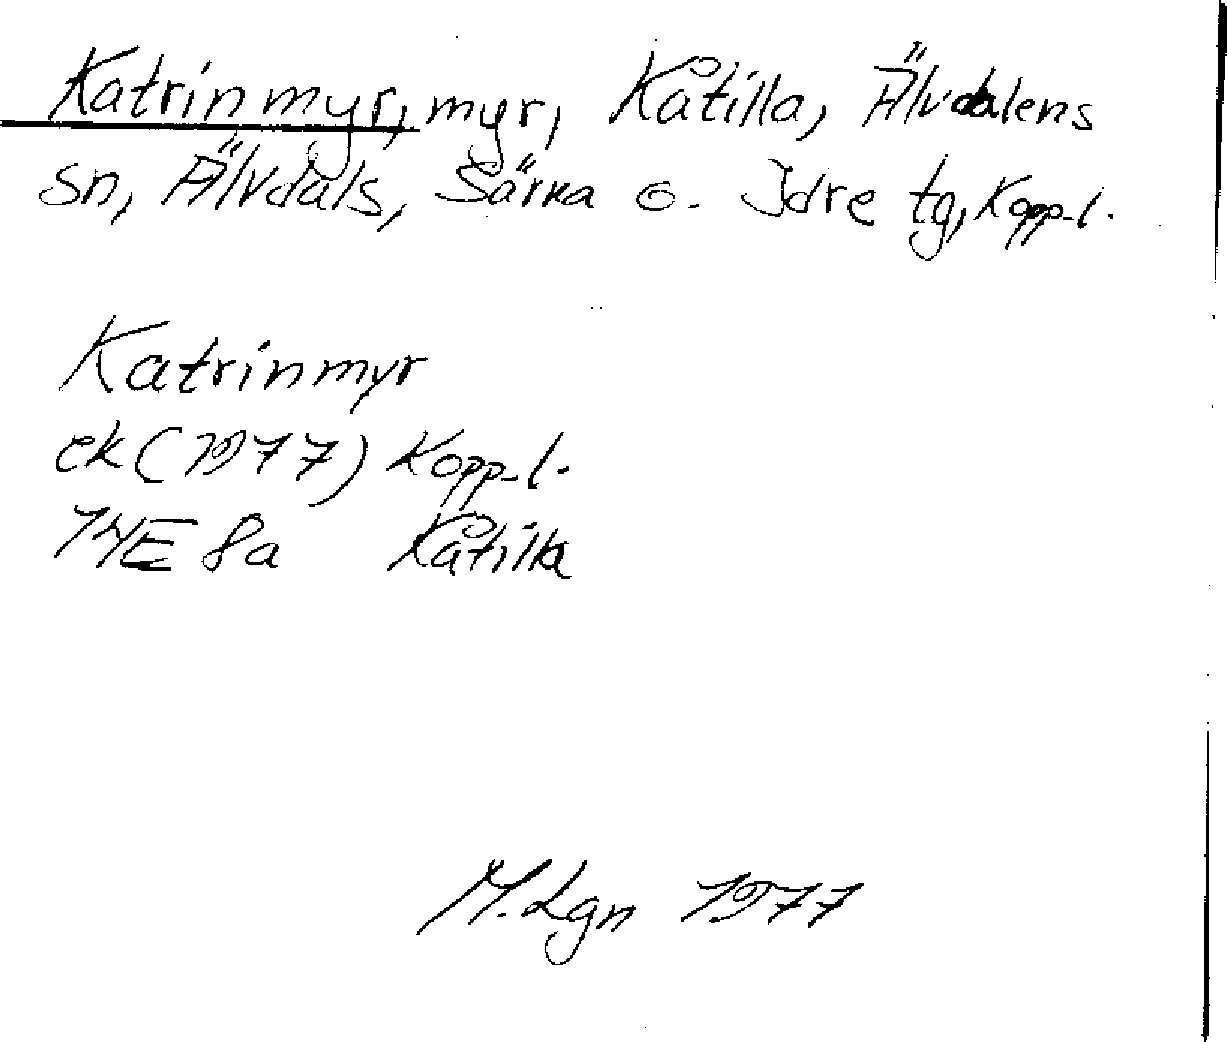 Katrinmyr, myr, Kåtilla, Älvdalens
sn, Älvdals, Särna o. Idre tg, Kopp-l.
Katrinmyr
ek (1977) Kopp-l.
14E 8a Kåtilla
M. Lgn 1977